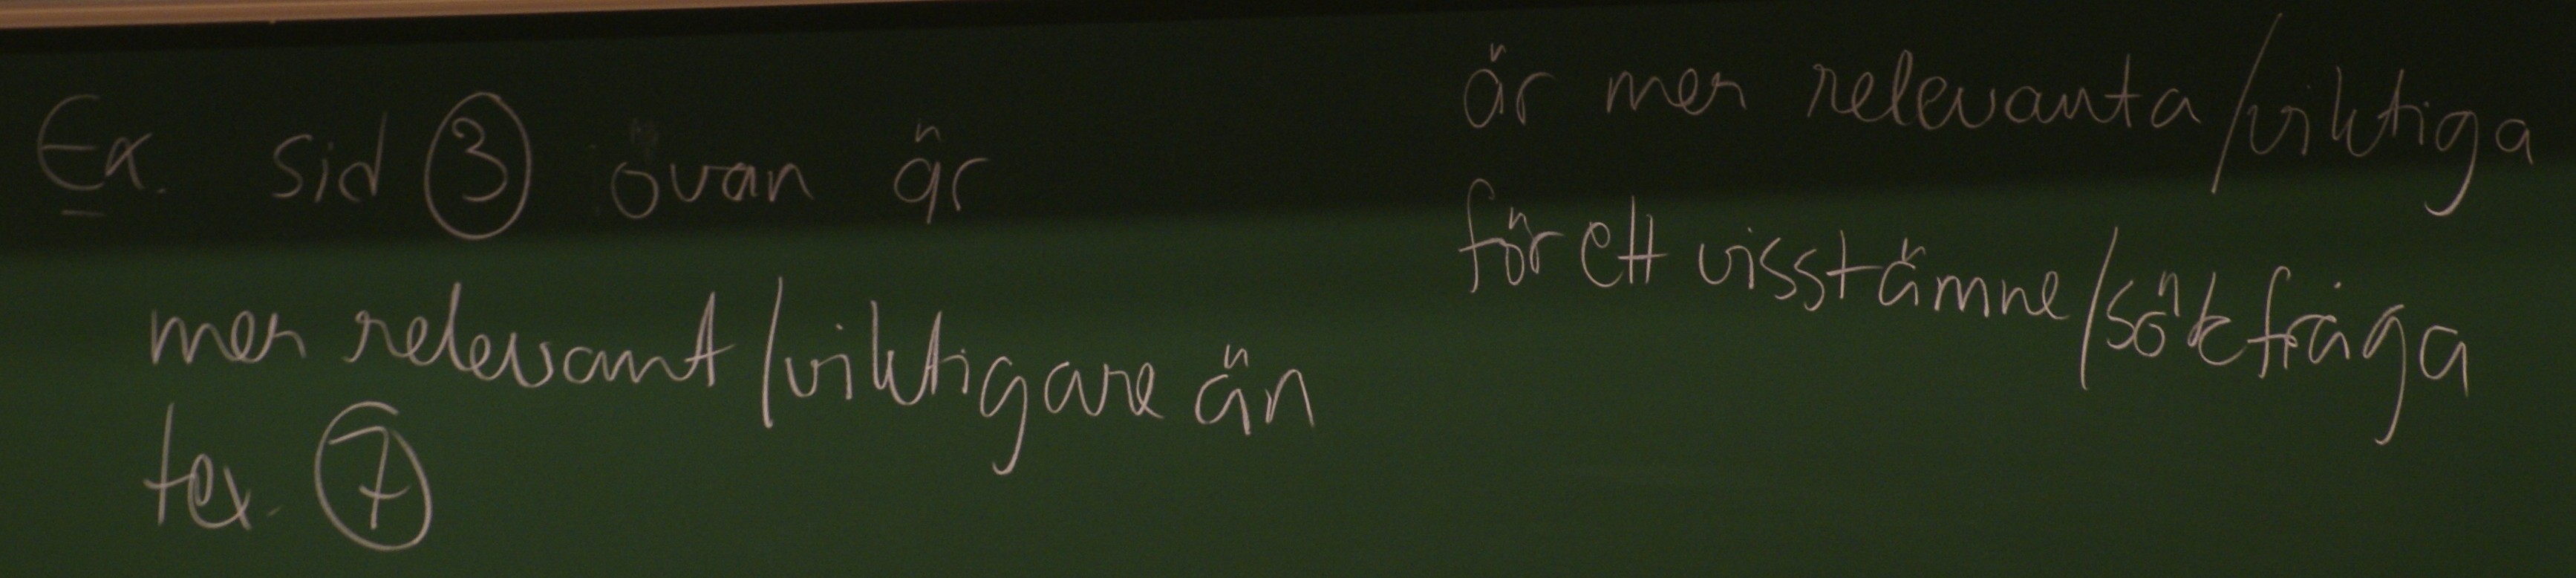 Ex. sid ③ övan är
mer relevant/viktigare än
tex. ⑦
är mer relevanta/viktiga
för ett visst ämne/sökfråga